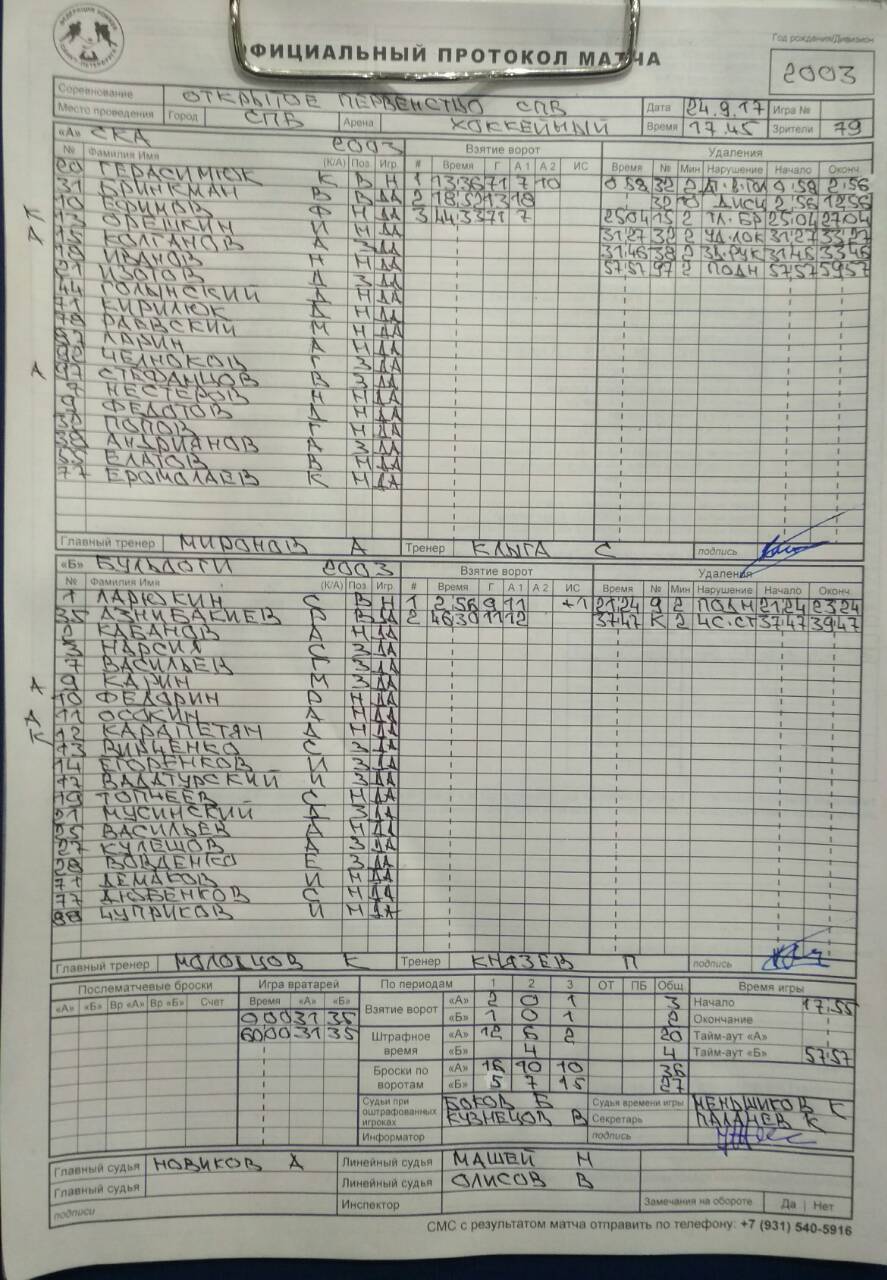 ФЕДЕРАЦИЯ ХОККЕЯ САНКТ-ПЕТЕРБУРГА
ОФИЦИАЛЬНЫЙ ПРОТОКОЛ МАТЧА
Год рождения/Дивизион
2003
Соревнование ОТКРЫТОЕ ПЕРВЕНСТВО СПБ Дата 24.9.17 Игра №
Место проведения Город СПБ Арена ХОККЕЙНЫЙ Время 17.45 Зрители 79
«А» СКА 2003 Взятие ворот Удаления
№ Фамилия Имя (К/А) Поз Игр # Время Г А 1 А 2 ИС Время № Мин Нарушение Начало Оконч.
20 ГЕРАСИМЮК К В Н 1 13 36 71 7 10 0 59 32 2 0 59 2 56
31 БРИНКМАН В В ДА 2 18 52 13 18 32 10 ДИСЦ 2 56 12 56
10 ЕФИМОВ Ф Н ДА 3 44 33 71 7 25 04 15 2 ТЛ. БР 25 04 27 04
К 13 ОРЕШКИН И Н ДА 31 27 32 2 УД. ЛОК 31 27 33 27
А 15 КОЛГАНОВ А З ДА 31 46 38 2 ЗД. РУК 31 46 33 46
18 ИВАНОВ Н Н ДА 57 57 97 2 ПОДН 57 57 59 57
21 ИЗОТОВ Д З ДА
44 ГОЛЫНСКИЙ Д Н ДА
71 КИРИЛЮК Д Н ДА
78 РАЕВСКИЙ М Н ДА
82 ЛАРИН А Н ДА
92 ЧЕЛНОКОВ Г З ДА
А 97 СТЕФАНЦОВ В З ДА
7 НЕСТЕРОВ Н Н ДА
9 ФЕДОТОВ Д Н ДА
32 ПОПОВ Г Н ДА
38 АНДРИАНОВ А З ДА
55 ЕЛАТОВ В Н ДА
77 ЕРОМОЛАЕВ К Н ДА
Главный тренер МИРОНОВ А Тренер КЛЫГА С подпись
«Б» БУЛЬДОГИ 2003 Взятие ворот Удаления
№ Фамилия Имя (К/А) Поз Игр # Время Г А 1 А 2 ИС Время № Мин Нарушение Начало Оконч.
1 ЛАРЮКИН С В Н 1 2 56 9 11 +1 21 24 9 2 ПОДН 21 24 23 24
35 АЗНИБАКИЕВ Р В ДА 2 46 30 11 12 37 47 К 2 ЧС. СТ 37 47 39 47
2 КАБАНОВ А Н ДА
3 НАРСИЯ С З ДА
7 ВАСИЛЬЕВ Г З ДА
А 9 КАРИН М З ДА
10 ФЕДОРИН Р Н ДА
А 11 ОСОКИН А Н ДА
К 12 КАРАПЕТЯН Д Н ДА
13 ВИНЧЕНКО С З ДА
14 ЕГОРЕНКОВ И З ДА
17 ВАЛАТУРСКИЙ И З ДА
19 ТОПЧЕЕВ С Н ДА
21 МУСИНСКИЙ Д З ДА
25 ВАСИЛЬЕВ Д Н ДА
27 КУЛЕШОВ А З ДА
28 ВОВДЕНКО Е З ДА
71 ДЕМАКОВ И Н ДА
77 ДЮБЕНКОВ С Н ДА
88 ЧУПРИКОВ И Н ДА
Главный тренер МОЛОДЦОВ К Тренер КНЯЗЕВ П подпись
Послематчевые броски Игра вратарей По периодам 1 2 3 ОТ ПБ Общ Время игры
«А» «Б» Вр «А» Вр «Б» Счет Время «А» «Б» Взятие ворот «А» 2 0 1 3 Начало 17.55
0 00 31 35 «Б» 1 0 1 2 Окончание
60 00 31 35 Штрафное время «А» 12 6 2 20 Тайм-аут «А»
«Б» 4 4 Тайм-аут «Б» 57 57
Броски по воротам «А» 16 10 10 36
«Б» 5 7 15 27
Судьи при оштрафованных игроках БОКОВ Б Судья времени игры МЕНЬШИКОВ К
КУЗНЕЦОВ В Секретарь ПАЛАЧЕВ К
Информатор подпись
Главный судья НОВИКОВ А Линейный судья МАШЕЙ Н
Главный судья Линейный судья ОЛИСОВ В
подписи Инспектор Замечания на обороте Да Нет
СМС с результатом матча отправить по телефону: +7 (931) 540-5916